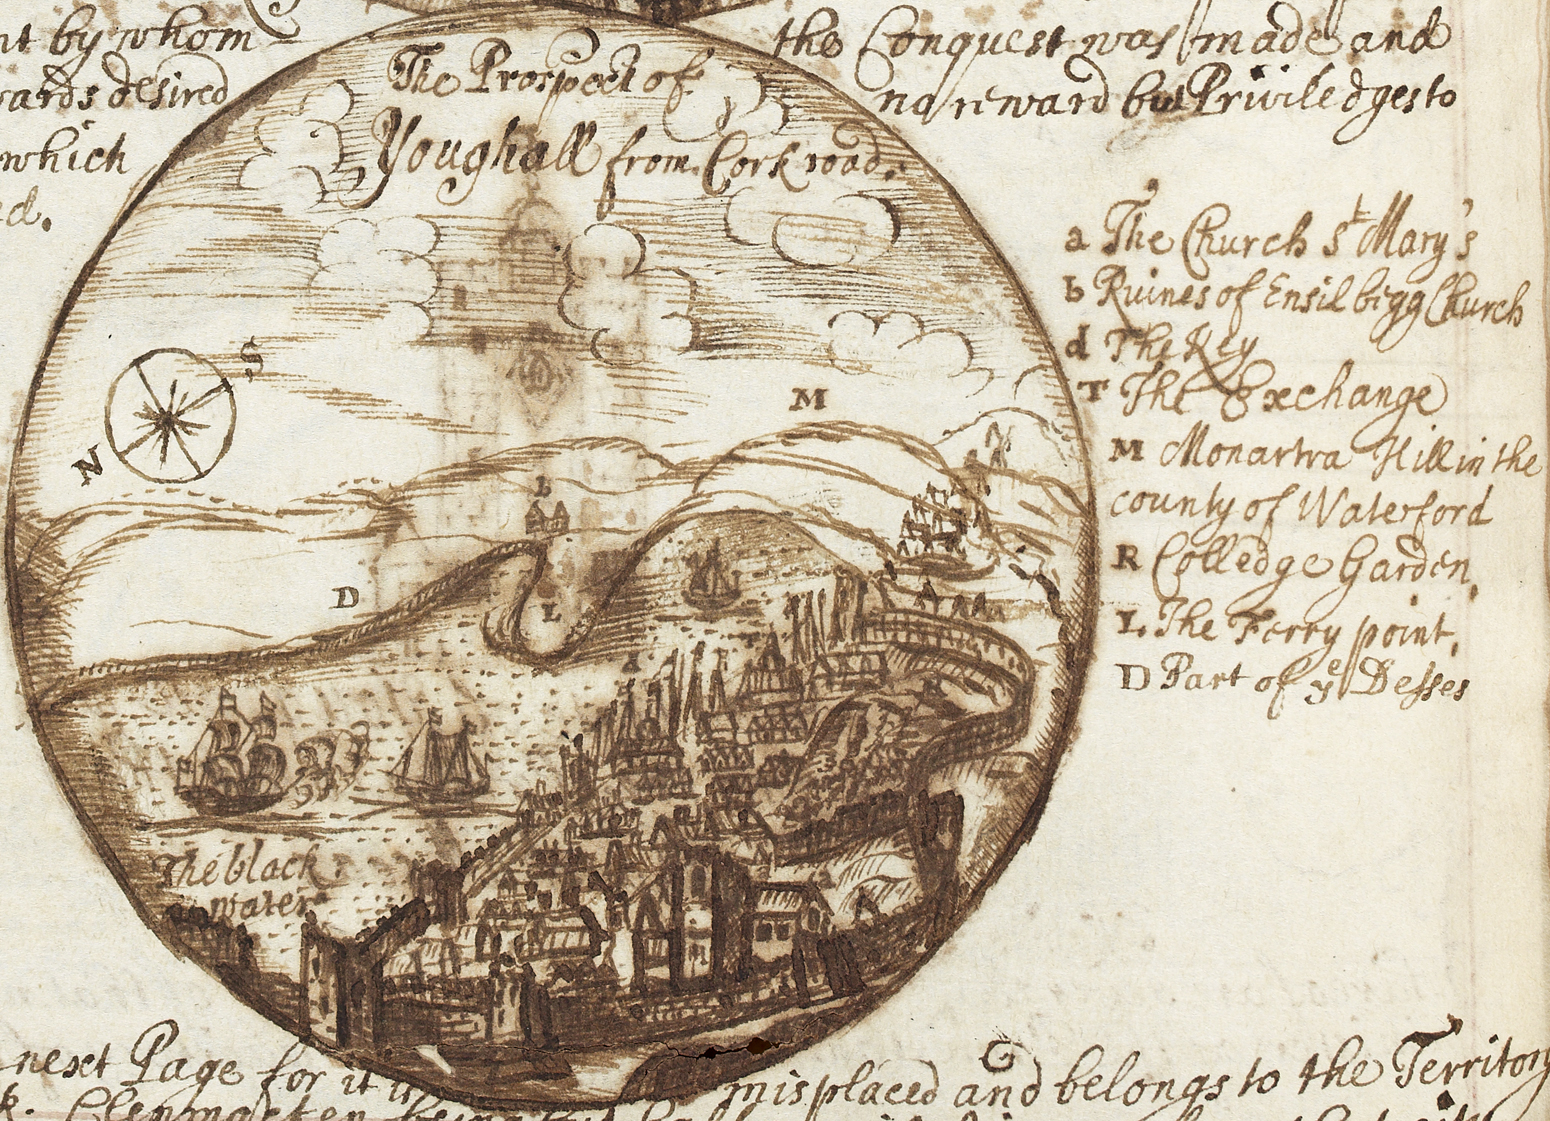 nt by whom
wards desired
which
ed.
the Conquest was made and
no reward but Priviledges to
The Prospect of
Youghall from Cork road.
a The Church St Mary's
b Ruines of Ensilbigg Church
d The Key
T The Exchange
M Monartra Hill in the
county of Waterford
R Colledge Garden,
L. The Ferry point,
D Part of ye Desses
S
N
M
B
D
L
The black
water
next Page for it is
misplaced and belongs to the Territory